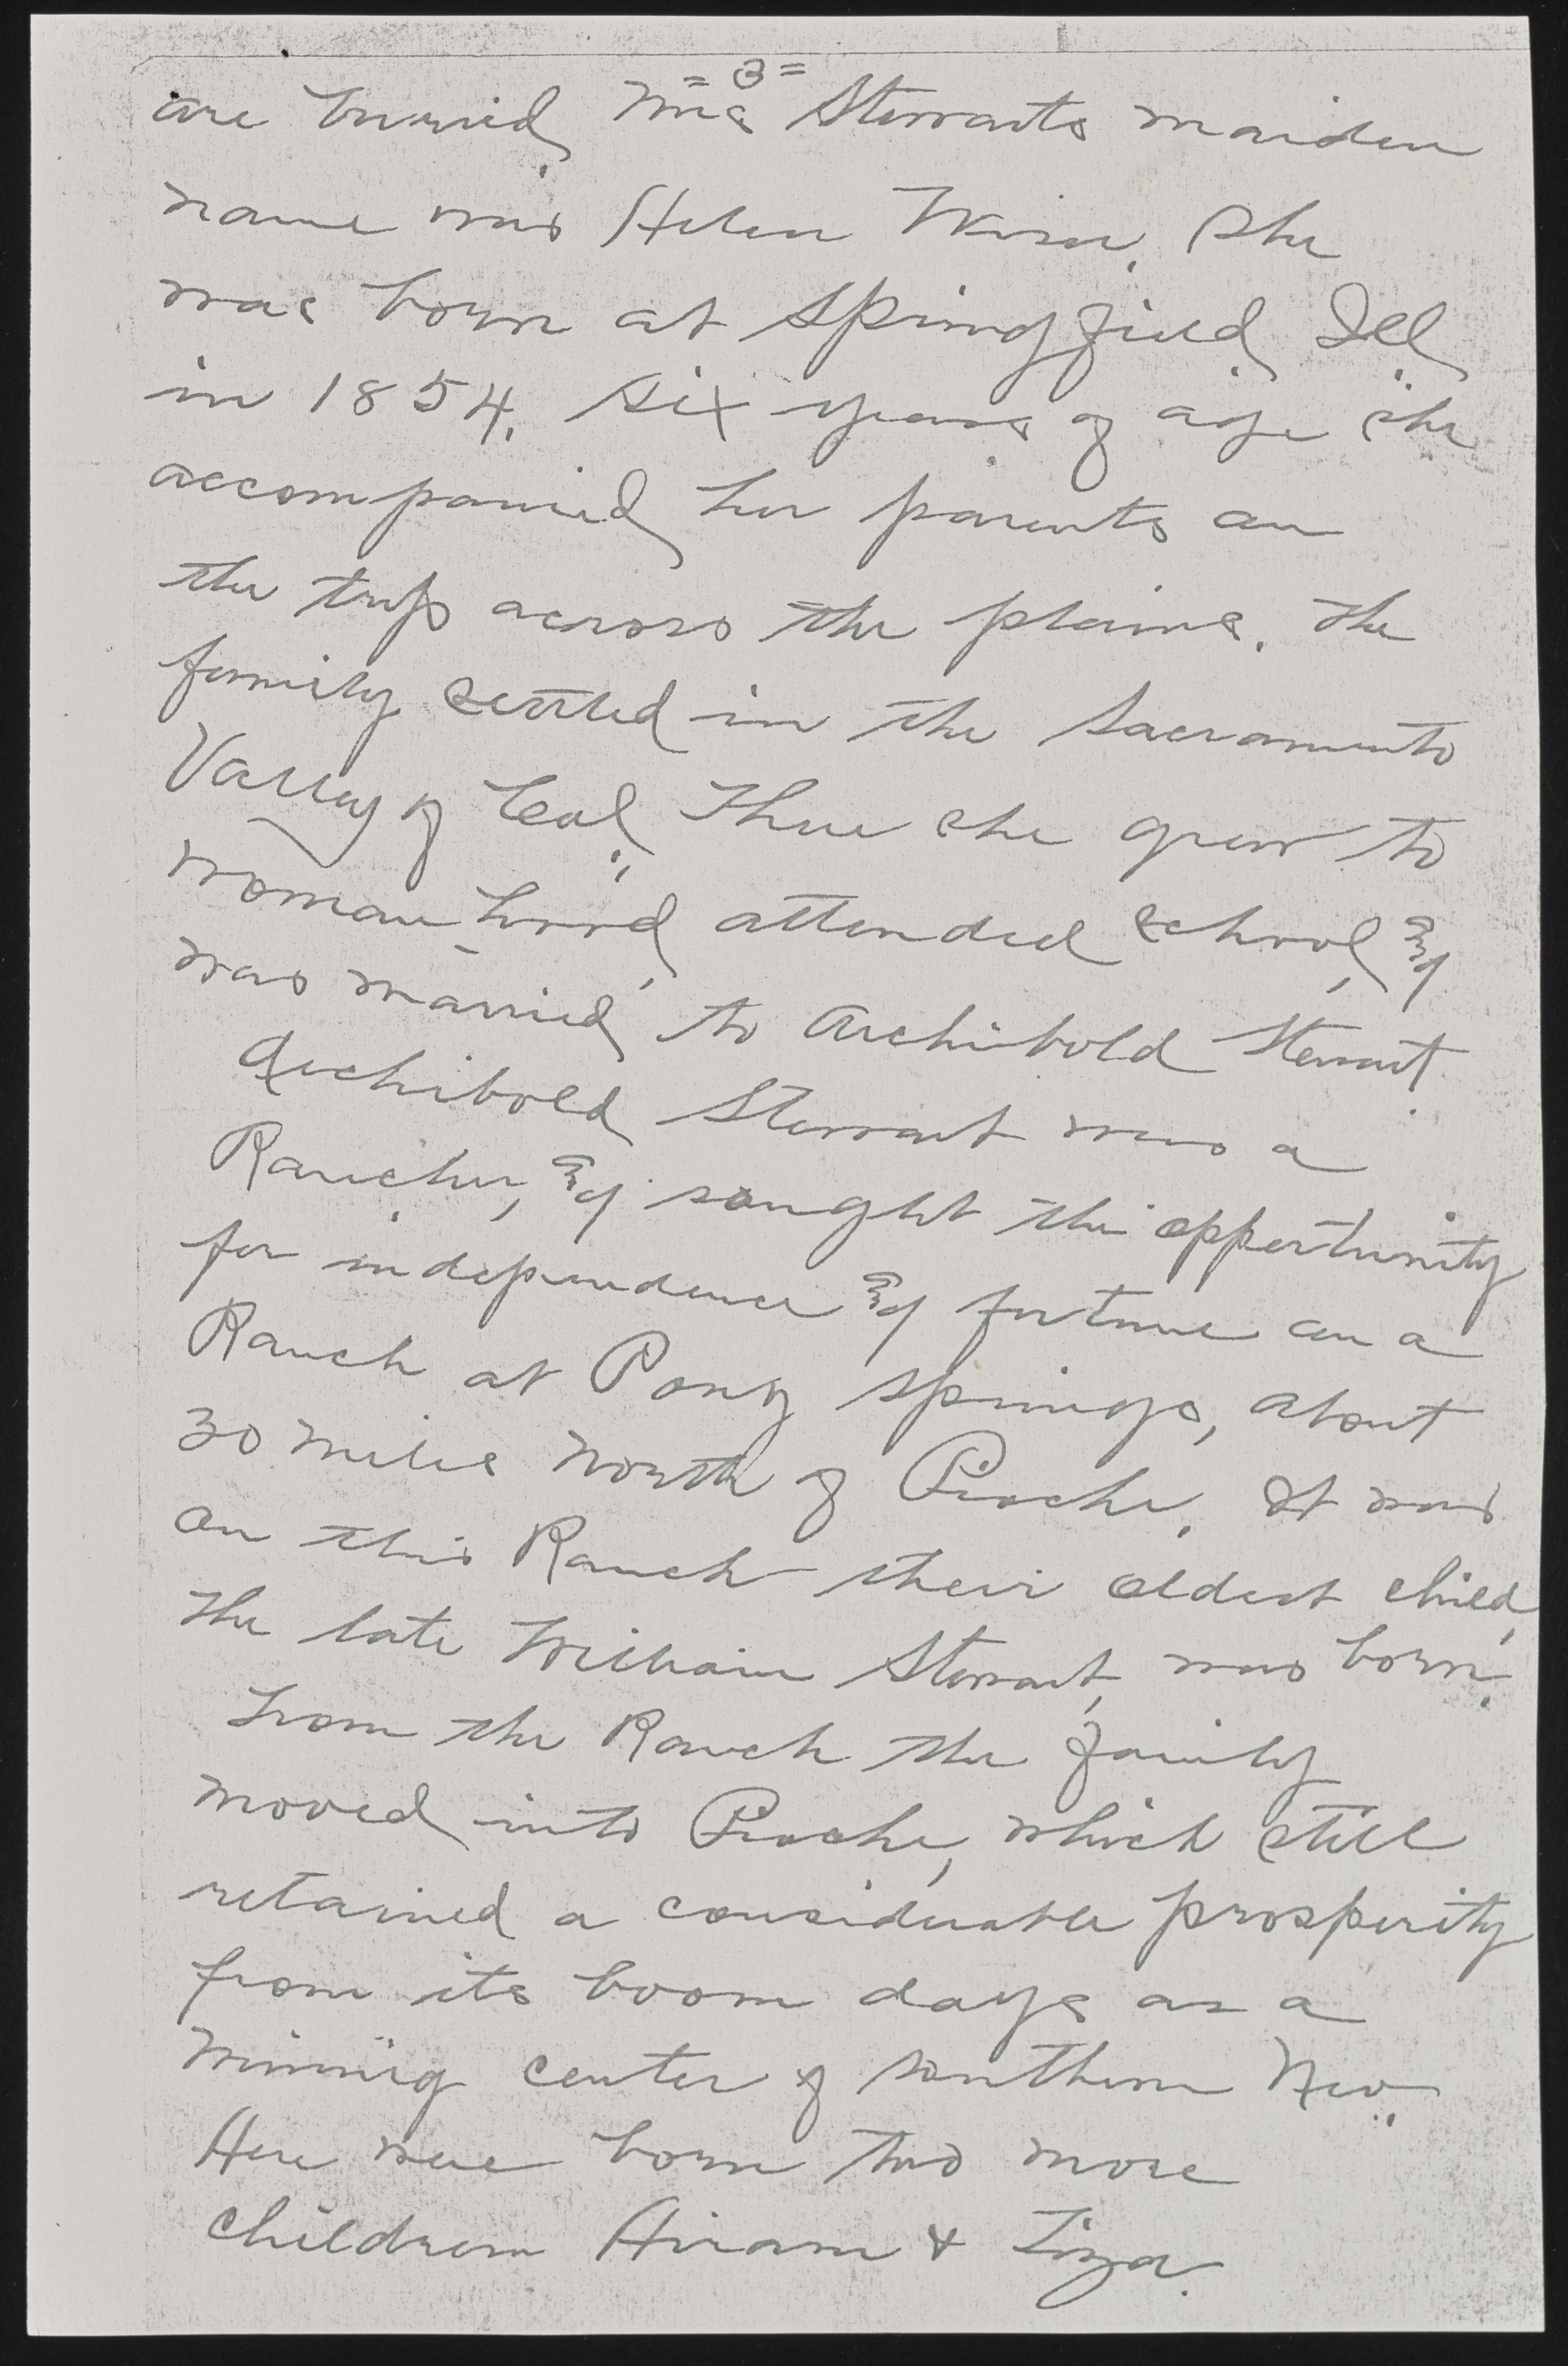 = 3 =
are buried. Mrs Stewarts maiden
name was Helen Wiser. She
was born at Springfield Ill.
in 1854. Six years of age she
accompanied her parents on
the trip across the plains. The
family settled in the Sacramento
Valley of Cal. There she grew to
woman-hood, attended school, &
was married to Archibold Stewart.
Archibold Stewart was a
Rancher, & sought the opportunity
for independence & fortune on a
Ranch at Pony Springs, about
30 miles North of Pioche. It was
on this Ranch their oldest child,
the late William Stewart, was born.
From the Ranch the family
moved into Pioche, which still
retained a considerable prosperity
from its boom days as a
mining center of southern Nev.
Here were born two more
children Hiram & Tiza.